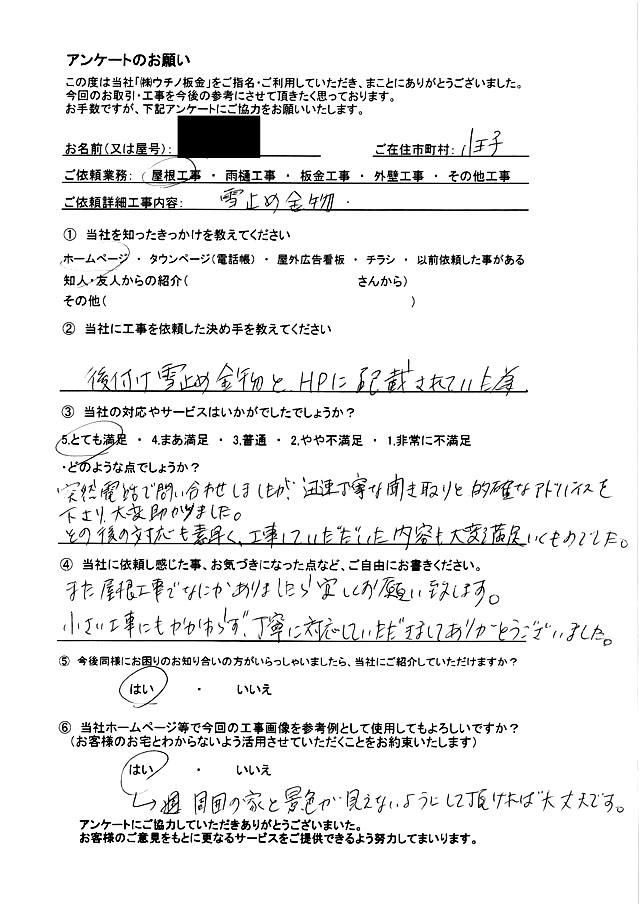 アンケートのお願い
この度は当社「㈱ウチノ板金」をご指名・ご利用していただき、まことにありがとうございました。
今回のお取引・工事を今後の参考にさせて頂きたく思っております。
お手数ですが、下記アンケートにご協力をお願いいたします。
お名前(又は屋号): ご在住市町村: 八王子
ご依頼業務: (屋根工事 ・ 雨樋工事 ・ 板金工事 ・ 外壁工事 ・ その他工事
ご依頼詳細工事内容: 雪止め金物.
① 当社を知ったきっかけを教えてください
ホームページ ・ タウンページ(電話帳) ・ 屋外広告看板 ・ チラシ ・ 以前依頼した事がある
知人・友人からの紹介( さんから)
その他( )
② 当社に工事を依頼した決め手を教えてください
後付け雪止め金物と、HPに記載されていた為
③ 当社の対応やサービスはいかがでしたでしょうか?
5.とても満足 ・ 4.まあ満足 ・ 3.普通 ・ 2.やや不満足 ・ 1.非常に不満足
・どのような点でしょうか?
突然電話で問い合わせしましたが、迅速丁寧な聞き取りと的確なアドバイスを
下さり、大変助かりました。
その後の対応も素早く、工事していただいた内容も大変満足いくものでした。
④ 当社に依頼し感じた事、お気づきになった点など、ご自由にお書きください。
また屋根工事でなにかありましたら宜しくお願い致します。
小さい工事にもかかわらず、丁寧に対応していただきましてありがとうございました。
⑤ 今後同様にお困りのお知り合いの方がいらっしゃいましたら、当社にご紹介していただけますか?
はい ・ いいえ
⑥ 当社ホームページ等で今回の工事画像を参考例として使用してもよろしいですか?
(お客様のお宅とわからないよう活用させていただくことをお約束いたします)
はい ・ いいえ
↳ 周囲の家と景色が見えないようにして頂ければ大丈夫です。
アンケートにご協力していただきありがとうございました。
お客様のご意見をもとに更なるサービスをご提供できるよう努力してまいります。